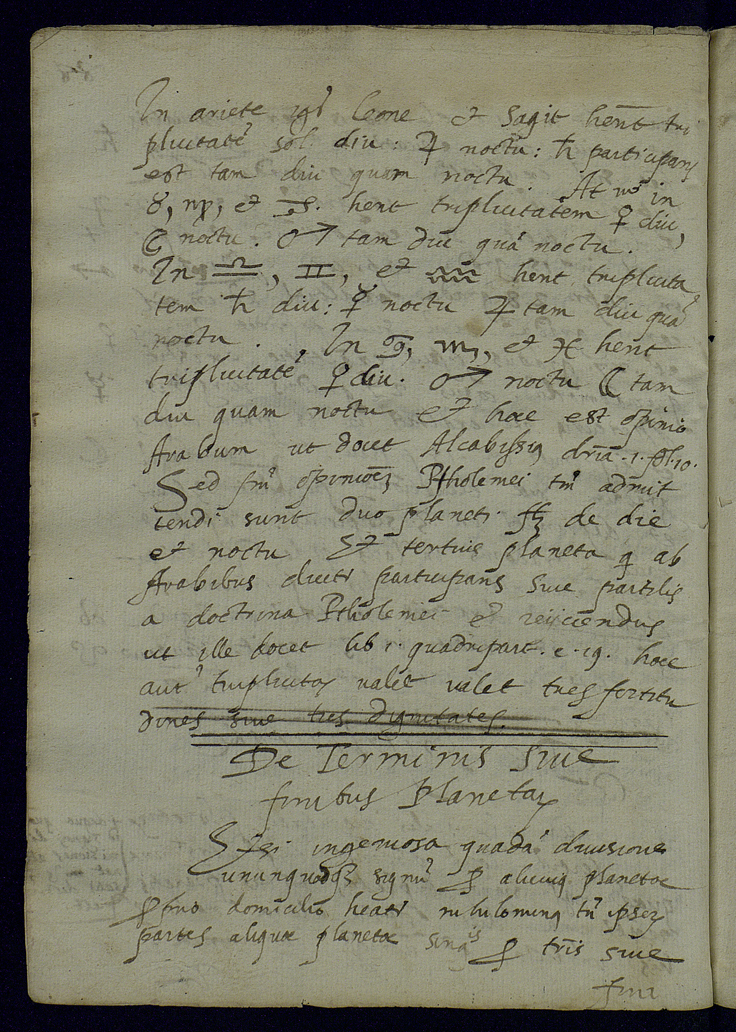 In ariete igr̃ leone et sagit hẽnt tri
plicitatẽ sol diu: ♃ noctu: ♄ participans
est tam diu quam noctu. At vº in
♉, ♍, et ♑. hent triplicitatem ♀ diu,
☾ noctu. ♂ tam diu quã noctu.
In ♎, ♊, et ♒ hent triplicita
tem ♄ diu: ☿ noctu ♃ tam diu quã
noctu. In ♋, ♏, et ♓ hent
triplicitatẽ ♀ diu. ♂ noctu ☾ tam
diu quam noctu et hoc est opinio
Arabum ut docet Alcabissiꝯ dr̃ia .1. fol. 10.
Sed sm̃ opinioẽ Ptholemei tm̃ admit
tendi sunt duo planeti de die
et noctu Et tertius planeta q ab
Arabibus dicit participans sive partilis
a doctrina Ptholemei et reijciendus
ut ille docet lib 1. quadripart. c. 19. hoc
aut̃ triplicitas valet valet tres fortitu
dines sive tres dignitates.
De Terminis sive
finibus Planetaꝝ
Etsi ingeniosa quadã divisione
ununquodqꝫ signũ ꝑ alicuiꝯ planetae
ꝓprio domicilio heatr nihilominꝯ tñ
partes aliquae planetae singis ꝑ tr̃is sive
fini